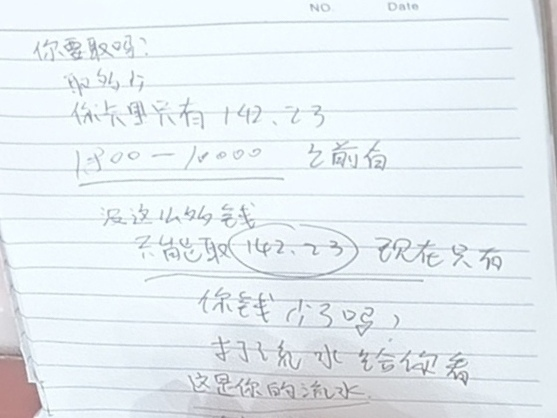 NO. Date
你要取吗?
取多少
你卡里只有142.23
1800—10000 之前有
没这么多钱
只能取142.23 现在只有
你钱少了吗,
打流水给你看
这是你的流水.